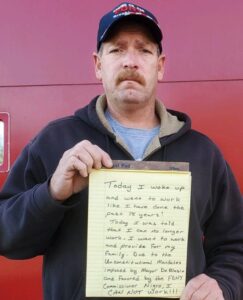 Today I woke up
and went to work
like I have done the
past 18 years!
Today I was told
that I can no longer
work. I want to work
and provide for my
Family. Due to the
Unconstitutional Mandates
imposed by Mayor De Blasio
and Favored by the FDNY
Commissioner Nigro, I
CAN NOT WORK!!!